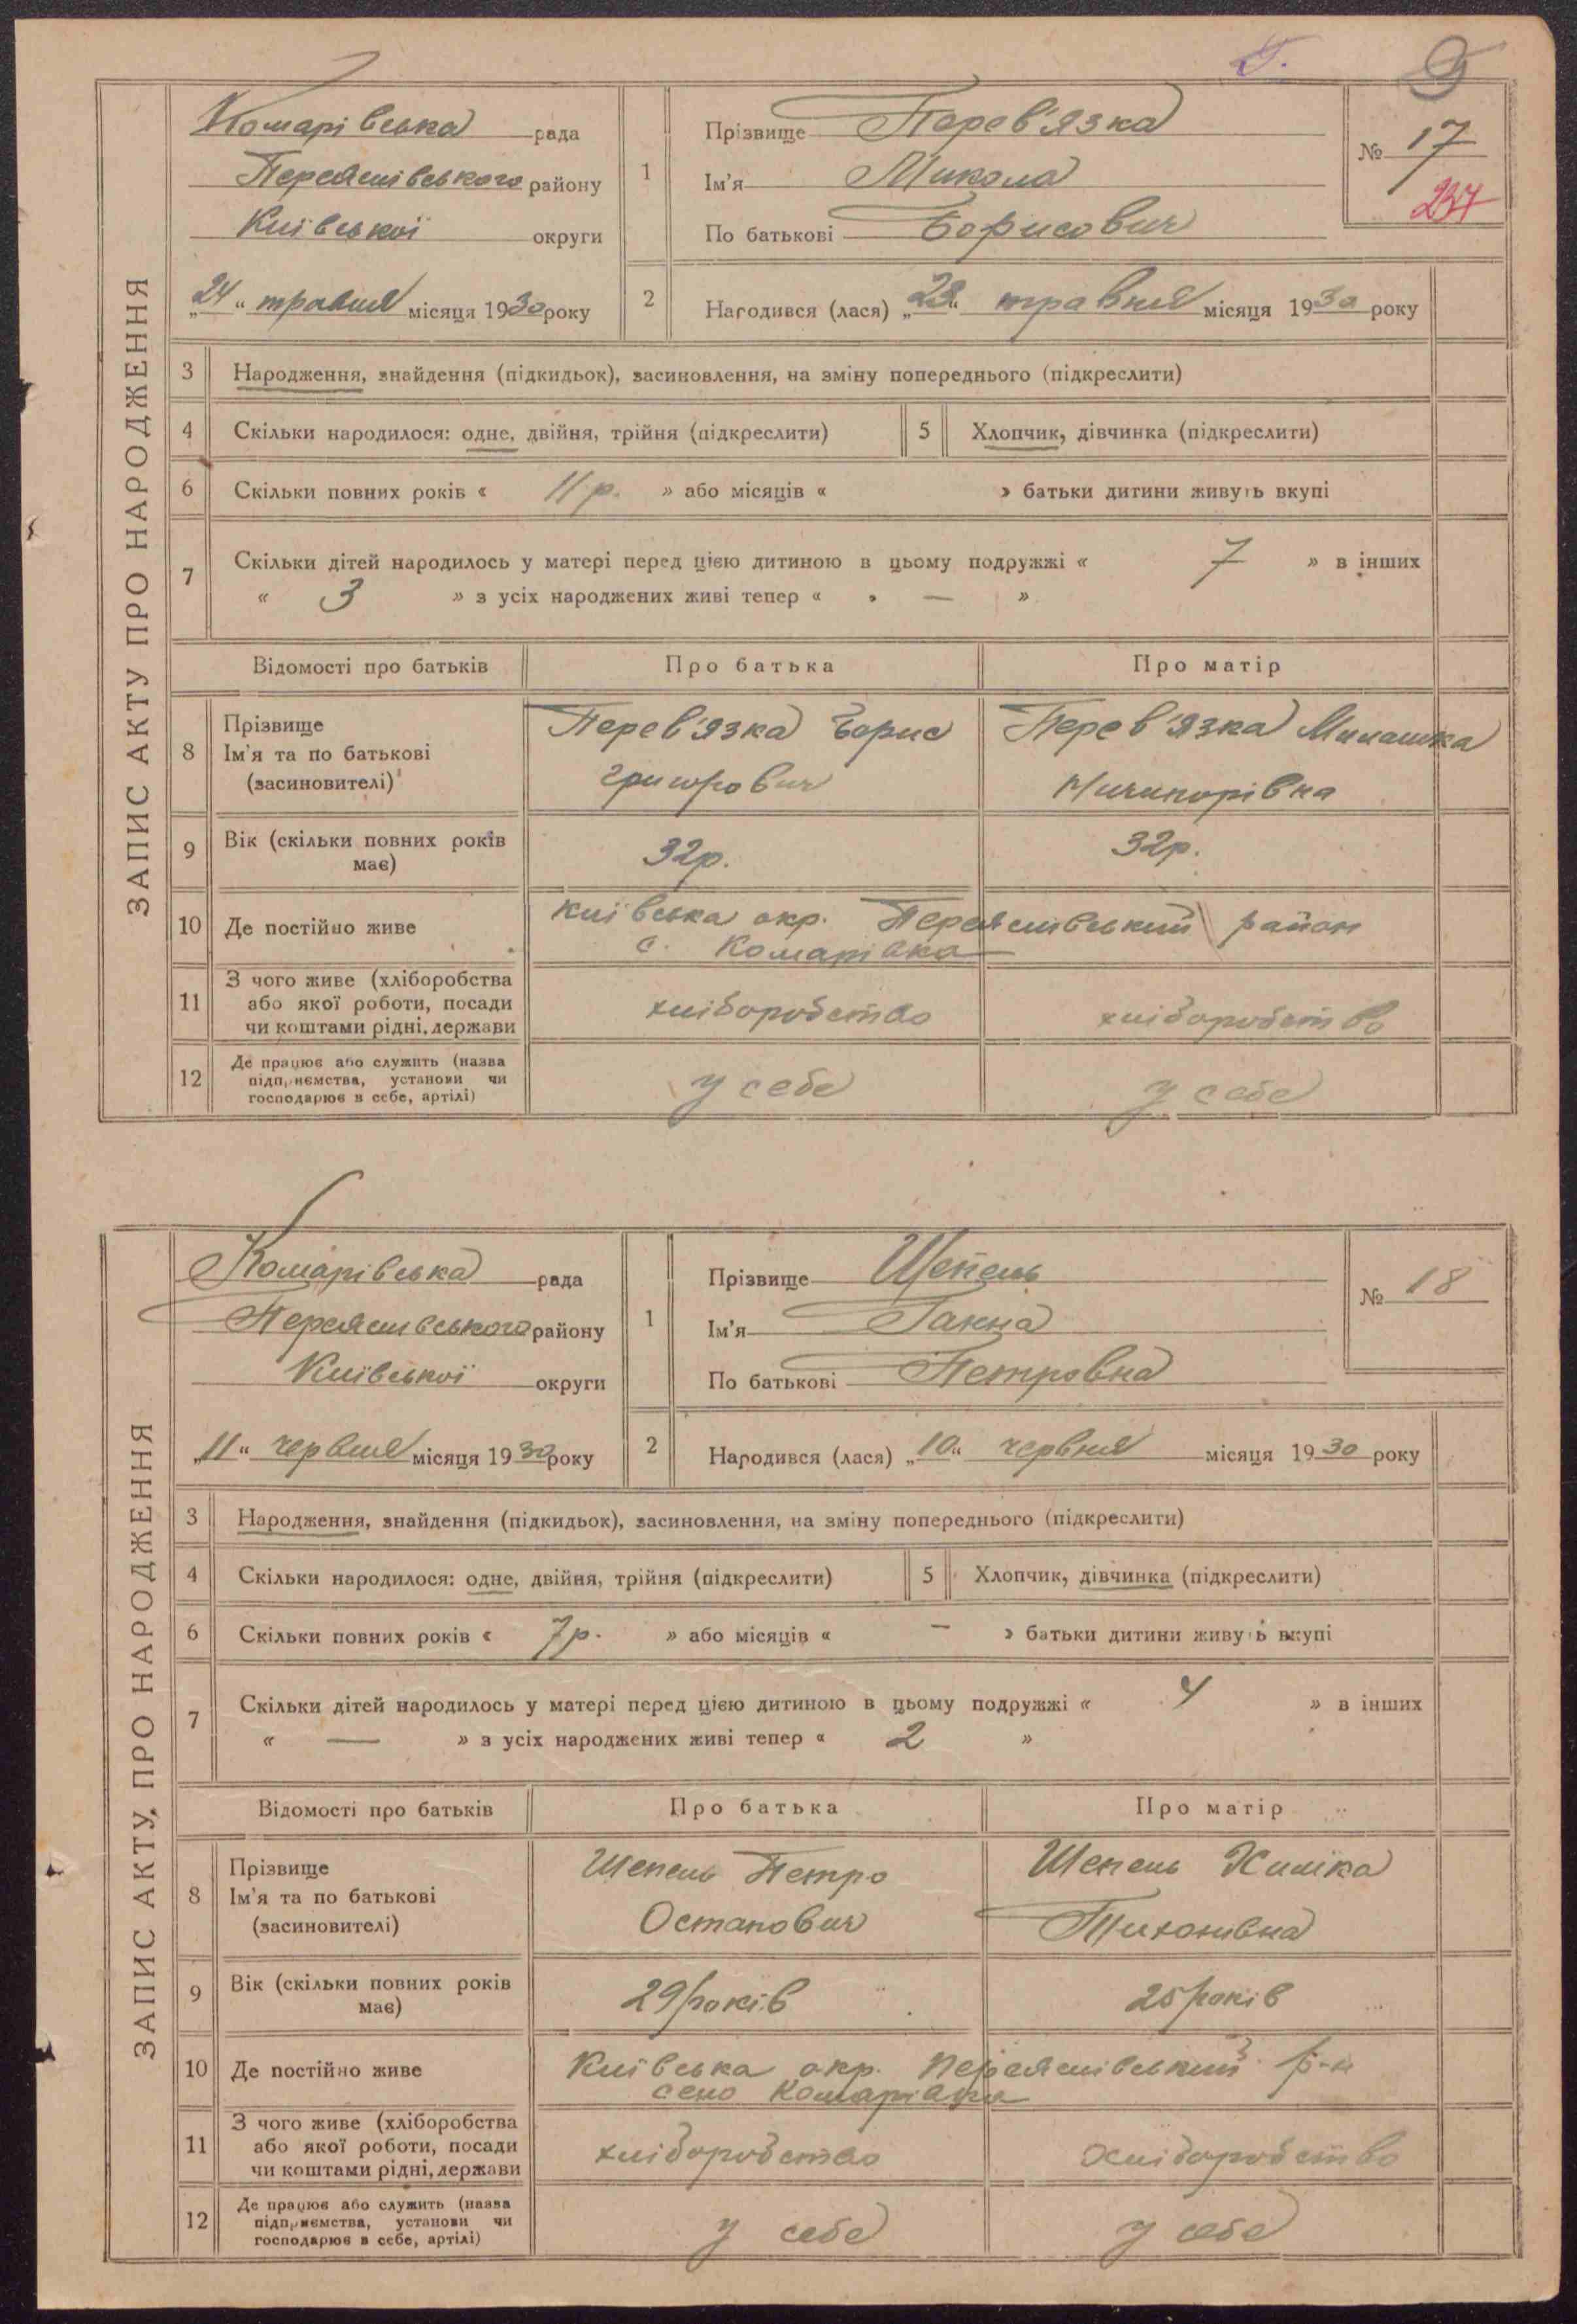 ЗАПИС АКТУ ПРО НАРОДЖЕННЯ
Комарівська рада
Переяслівського району
Київської округи
"24" травня місяця 1930 року
1 Прізвище Перев'язка
Ім'я Микола
По батькові Борисович
№ 17
237
2 Народився (лася) "23" травня місяця 1930 року
3 Народження, знайдення (підкидьок), засиновлення, на зміну попереднього (підкреслити)
4 Скільки народилося: одне, двійня, трійня (підкреслити) 5 Хлопчик, дівчинка (підкреслити)
6 Скільки повних років « 11 р. » або місяців « » батьки дитини живуть вкупі
7 Скільки дітей народилось у матері перед цією дитиною в цьому подружжі « 7 » в інших
« 3 » з усіх народжених живі тепер « — »
Відомості про батьків Про батька Про матір
8 Прізвище
Ім'я та по батькові
(засиновителі)
Перев'язка Борис
Григорович
Перев'язка Милашка
Ничипорівна
9 Вік (скільки повних років
має)
32р. 32р.
10 Де постійно живе
Київська окр. Переяслівський район
с. Комарівка
11 З чого живе (хліборобства
або якої роботи, посади
чи коштами рідні, держави
хліборобство хліборобство
12 Де працює або служить (назва
підприємства, установи чи
господарює в себе, артілі)
у себе у себе
ЗАПИС АКТУ ПРО НАРОДЖЕННЯ
Комарівська рада
Переяслівського району
Київської округи
"11" червня місяця 1930 року
1 Прізвище Шепель
Ім'я Ганна
По батькові Петровна
№ 18
2 Народився (лася) "10" червня місяця 1930 року
3 Народження, знайдення (підкидьок), засиновлення, на зміну попереднього (підкреслити)
4 Скільки народилося: одне, двійня, трійня (підкреслити) 5 Хлопчик, дівчинка (підкреслити)
6 Скільки повних років « 7р. » або місяців « — » батьки дитини живуть вкупі
7 Скільки дітей народилось у матері перед цією дитиною в цьому подружжі « 4 » в інших
« — » з усіх народжених живі тепер « 2 »
Відомості про батьків Про батька Про матір
8 Прізвище
Ім'я та по батькові
(засиновителі)
Шепель Петро
Остапович
Шепель Химка
Тихонівна
9 Вік (скільки повних років
має)
29 років 25 років
10 Де постійно живе
Київська окр. Переяслівський р-н
село Комарівка
11 З чого живе (хліборобства
або якої роботи, посади
чи коштами рідні, держави
хліборобство хліборобство
12 Де працює або служить (назва
підприємства, установи чи
господарює в себе, артілі)
у себе у себе